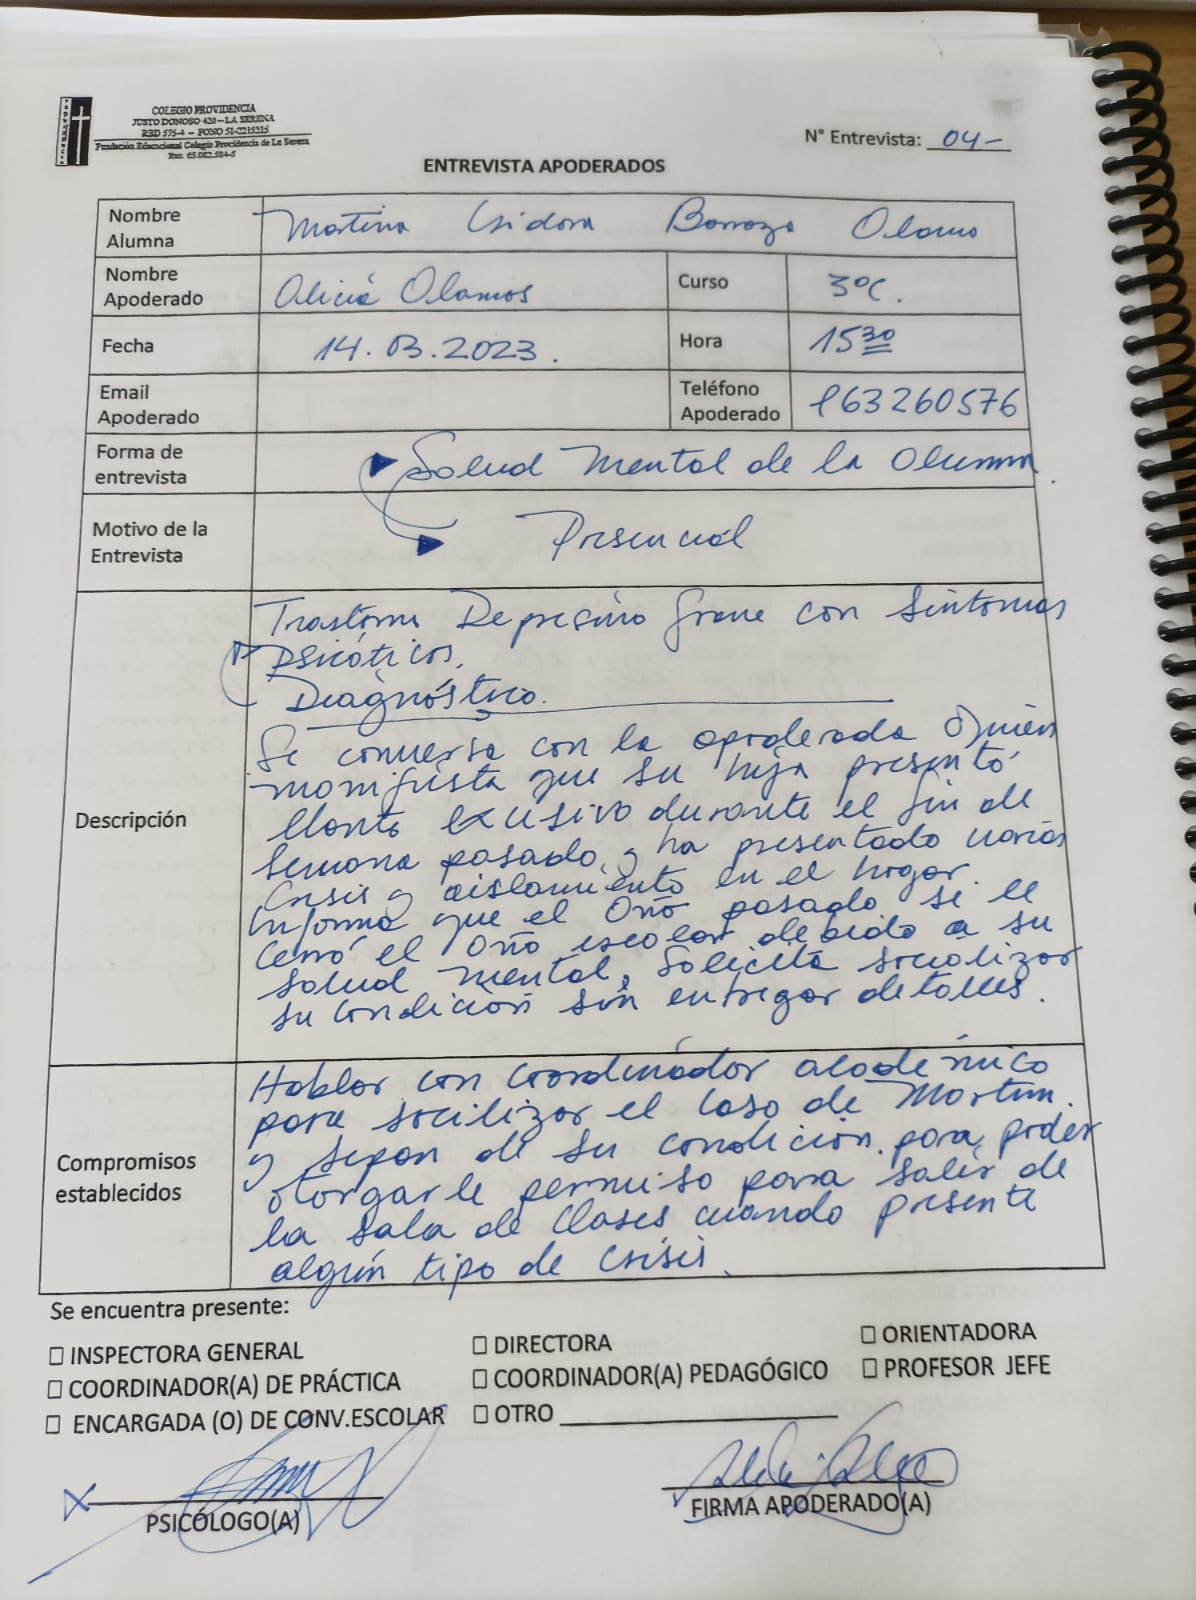 COLEGIO PROVIDENCIA
JUSTO DONOSO 420 – LA SERENA
RBD 575-4 – FONO 51-2215215
Fundación Educacional Colegio Providencia de La Serena
Rut: 65.082.584-5
N° Entrevista: 04-
ENTREVISTA APODERADOS
Nombre Alumna Martina Isidora Barraza Olamo
Nombre Apoderado Alicia Olamos Curso 3ºC.
Fecha 14.03.2023. Hora 15 30
Email Apoderado Teléfono Apoderado 963260576
Forma de entrevista Salud Mental de la Alumna.
Motivo de la Entrevista Presencial
Descripción
Trastorno Depresivo Grave con Síntomas
psicóticos.
Diagnóstico.
Se conversa con la apoderada Quien
manifiesta que su hija presentó
llanto excesivo durante el fin de
semana pasado, y ha presentado varias
Crisis y aislamiento en el hogar.
Informa que el año pasado se le
cerró el año escolar debido a su
salud mental, Solicita socializar
su condición sin entregar detalles.
Compromisos establecidos
Hablar con Coordinador académico
para socilizar el Caso de Martina.
y sepan de su condición para poder
otorgarle permiso para salir de
la sala de Clases cuando presente
algún tipo de Crisis.
Se encuentra presente:
☐ INSPECTORA GENERAL ☐ DIRECTORA ☐ ORIENTADORA
☐ COORDINADOR(A) DE PRÁCTICA ☐ COORDINADOR(A) PEDAGÓGICO ☐ PROFESOR JEFE
☐ ENCARGADA (O) DE CONV.ESCOLAR ☐ OTRO
PSICÓLOGO(A) FIRMA APODERADO(A)